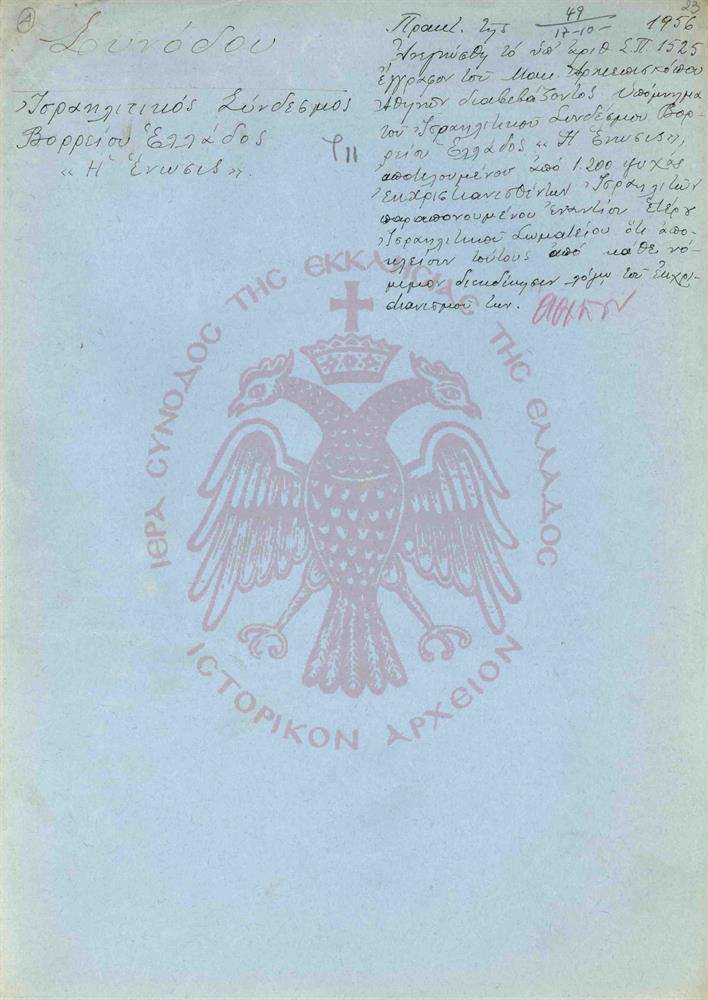 Α
23
Συνόδου
Ἰσραηλιτικὸς Σύνδεσμος
Βορρείου Ἑλλάδος
« Ἡ Ἕνωσις ».
Πρακτ. τῆς 49
17-10- 1956
Ἀνεγνώσθη τὸ ὑπ' ἀριθ Σ.Π. 1525
ἔγγραφον τοῦ Μακ. Ἀρχιεπισκόπου
Ἀθηνῶν διαβιβάζοντος ὑπόμνημα
τοῦ Ἰσραηλιτικοῦ Συνδέσμου Βορ-
ρείου Ἑλλάδος « Ἡ Ἕνωσις »,
ἀποτελουμένου ἀπὸ 1.200 ψυχὰς
ἐκχριστιανισθέντων Ἰσραηλιτῶν
παραπονουμένου ἐναντίον ἑτέρου
Ἰσραηλιτικοῦ Σωματείου ὅτι ἀπο-
κλείουν τούτους ἀπὸ κάθε νό-
μιμον διεκδίκησιν λόγῳ τοῦ ἐκχρι-
στιανισμοῦ των.
ΙΕΡΑ СΥΝΟΔΟС ΤΗС ΕΚΚΛΗСΙΑС ΤΗС ΕΛΛΑΔΟС
ΙСΤΟΡΙΚΟΝ ΑΡΧΕΙΟΝ